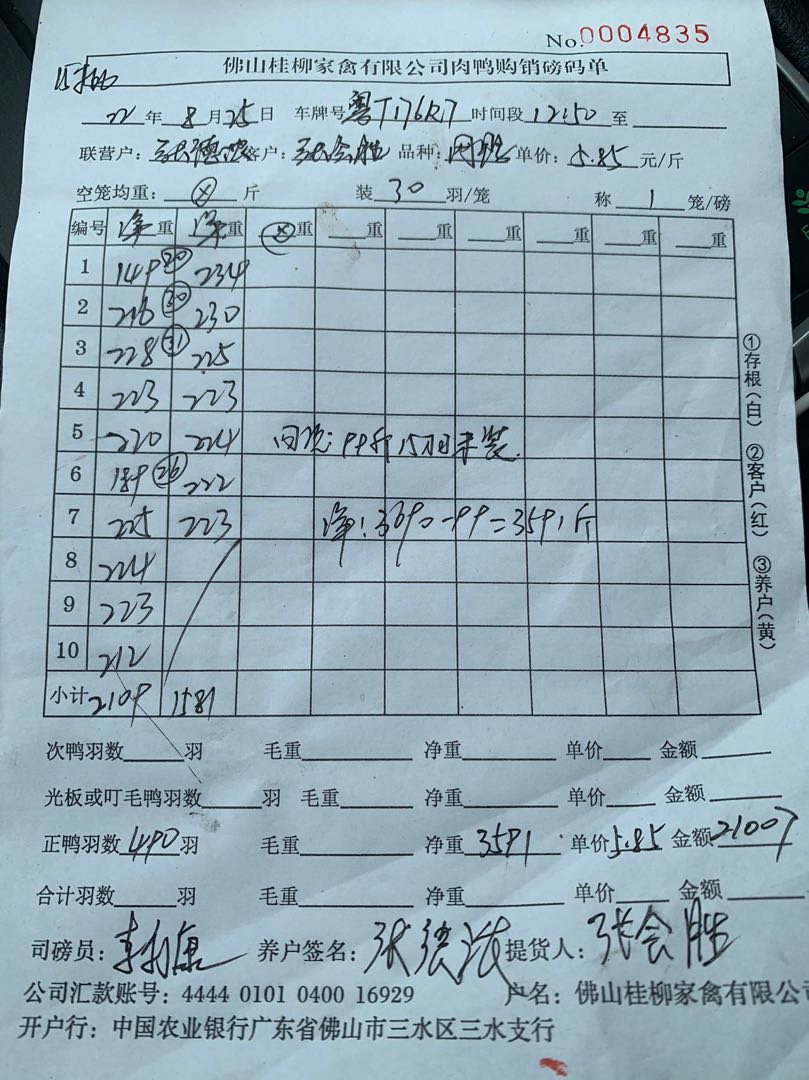 No.0004835
佛山桂柳家禽有限公司肉鸭购销磅码单
22年8月25日 车牌号粤T176R7 时间段12:50至
联营户:张德洪 客户:张会胜 品种: 单价:5.85元/斤
空笼均重:⊗斤 装30羽/笼 称1笼/磅
编号 净重 净重 ⊗重 重 重 重 重 重 重
1 149 ⑳ 234
2 216 ㉚ 230
3 228 ㉛ 225
4 223 223
5 220 224 回说:99斤15羽未装
6 189 ㉖ 222
7 225 223 净:3690-99=3591斤
8 224
9 223
10 212
小计 2109 1581
①存根(白) ②客户(红) ③养户(黄)
次鸭羽数 羽 毛重 净重 单价 金额
光板或叮毛鸭羽数 羽 毛重 净重 单价 金额
正鸭羽数490羽 毛重 净重3591 单价5.85 金额21007
合计羽数 羽 毛重 净重 单价 金额
司磅员: 养户签名:张德洪 提货人:张会胜
公司汇款账号:4444 0101 0400 16929 户名:佛山桂柳家禽有限公司
开户行:中国农业银行广东省佛山市三水区三水支行